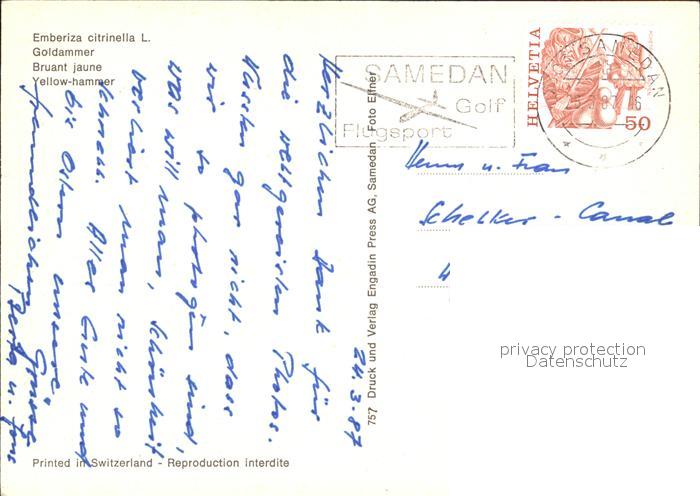 Emberiza citrinella L.
Goldammer
Bruant jaune
Yellow-hammer
24.3.87
Herzlichen Dank für
die weitgereisten Photos.
Wussten gar nicht, dass
wir so photogen sind,
was will man, Schönheit
verliert man nicht so
schnell. Alles Gute und
bis Ostern
freundlichen Grüsse
u.
Printed in Switzerland - Reproduction interdite
757 Druck und Verlag Engadin Press AG, Samedan Foto Elfner
SAMEDAN
Golf
Flugsport
SAMEDAN
HELVETIA
50
Herrn u. Frau
Schelker - Canal
privacy protection
Datenschutz